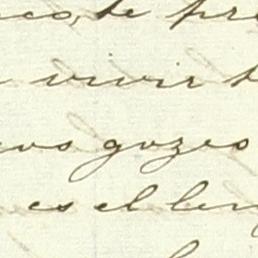 co, te pre
vivir t
vos gozes
es el len